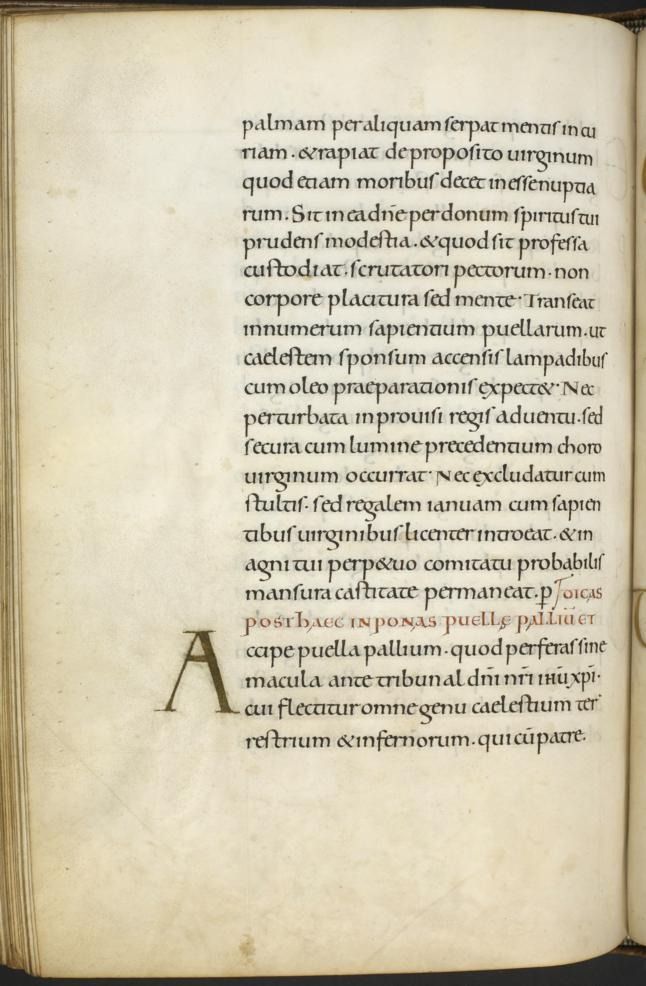 palmam per aliquam serpat mentis incu
riam. & rapiat de proposito uirginum
quod etiam moribus decet inesse nuptia
rum. Sit in ea dñe per donum spiritus tui
prudens modestia. & quod sit professa
custodiat. scrutatori pectorum. non
corpore placitura sed mente. Transeat
innumerum sapientium puellarum. ut
caelestem sponsum accensis lampadibus
cum oleo praeparationis expect&. Nec
perturbata inprouisi regis aduentu. sed
secura cum lumine precedentium choro
uirginum occurrat. Nec excludatur cum
stultis. sed regalem ianuam cum sapien
tibus uirginibus licenter introeat. & in
agni tui perp&uo comitatu probabilis
mansura castitate permaneat. p̄
POSTHAEC INPONAS PUELLĘ PALLIŪ ET DICAS
Accipe puella pallium. quod perferas sine
macula ante tribunal dñi nr̄i ihū xp̄i.
cui flectitur omne genu caelestium ter
restrium & infernorum. qui cū patre.